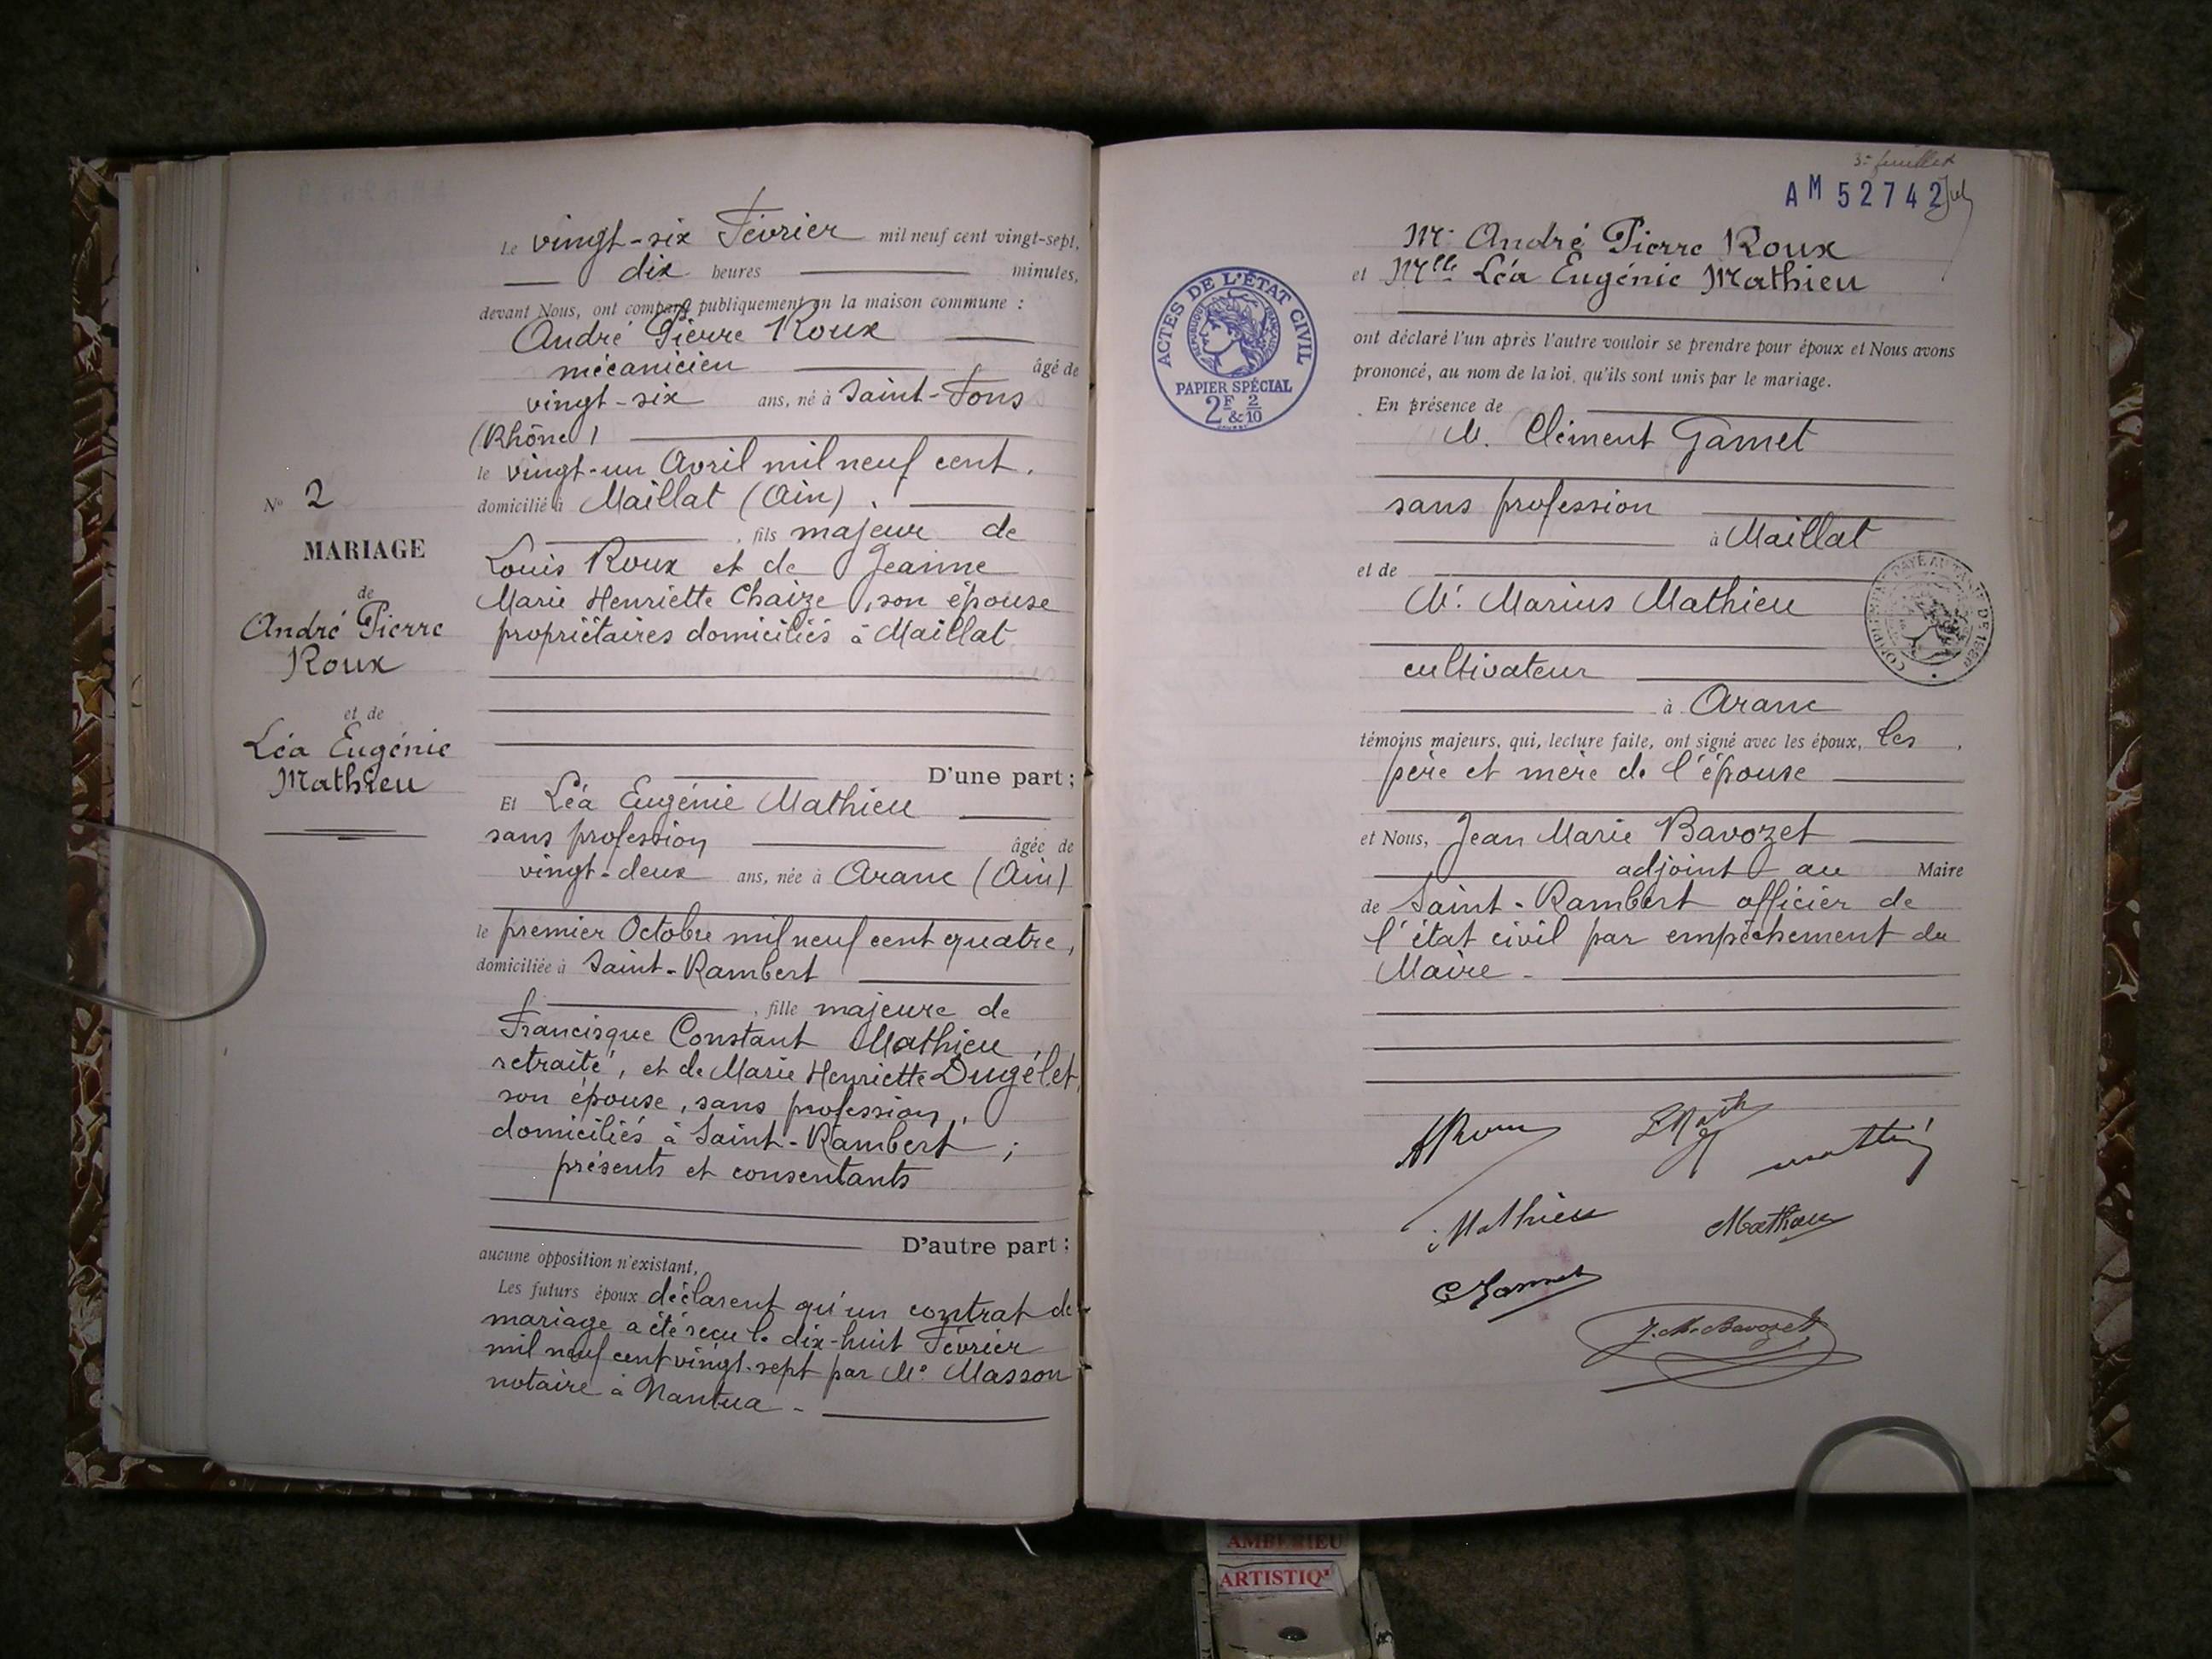 N° 2
MARIAGE
de
André Pierre
Roux
et de
Léa Eugénie
Mathieu
Le vingt-six Février mil neuf cent vingt-sept,
dix heures minutes,
devant Nous, ont comparu publiquement en la maison commune :
André Pierre Roux
mécanicien âgé de
vingt-six ans, né à Saint-Fons
(Rhône)
le vingt-un Avril mil neuf cent,
domicilié à Maillat (Ain),
, fils majeur de
Louis Roux et de Jeanne
Marie Henriette Chaize, son épouse
propriétaires domiciliés à Maillat
D'une part ;
Et Léa Eugénie Mathieu
sans profession âgée de
vingt-deux ans, née à Aranc (Ain)
le premier Octobre mil neuf cent quatre,
domiciliée à Saint-Rambert
, fille majeure de
Francisque Constant Mathieu,
retraité, et de Marie Henriette Dugélet,
son épouse, sans profession,
domiciliés à Saint-Rambert ;
présents et consentants
D'autre part ;
aucune opposition n'existant,
Les futurs époux déclarent qu'un contrat de
mariage a été reçu le dix-huit Février
mil neuf cent vingt-sept par Me Masson
notaire à Nantua -
3e feuillet
AM 52742
Mr André Pierre Roux
et Mlle Léa Eugénie Mathieu
ACTES DE L'ÉTAT CIVIL
RÉPUBLIQUE FRANÇAISE
PAPIER SPÉCIAL
2F & 2/10
ont déclaré l'un après l'autre vouloir se prendre pour époux et Nous avons
prononcé, au nom de la loi, qu'ils sont unis par le mariage.
En présence de
M. Clément Gamet
sans profession
à Maillat
et de
Mr. Marius Mathieu
cultivateur
à Aranc
témoins majeurs, qui, lecture faite, ont signé avec les époux, les
père et mère de l'épouse
et Nous, Jean Marie Bavozet
adjoint au Maire
de Saint-Rambert officier de
l'état civil par empêchement du
Maire -
ARoux
Mathieu
Mathieu
J. M. Bavozet
AMBERIEU
ARTISTIQ